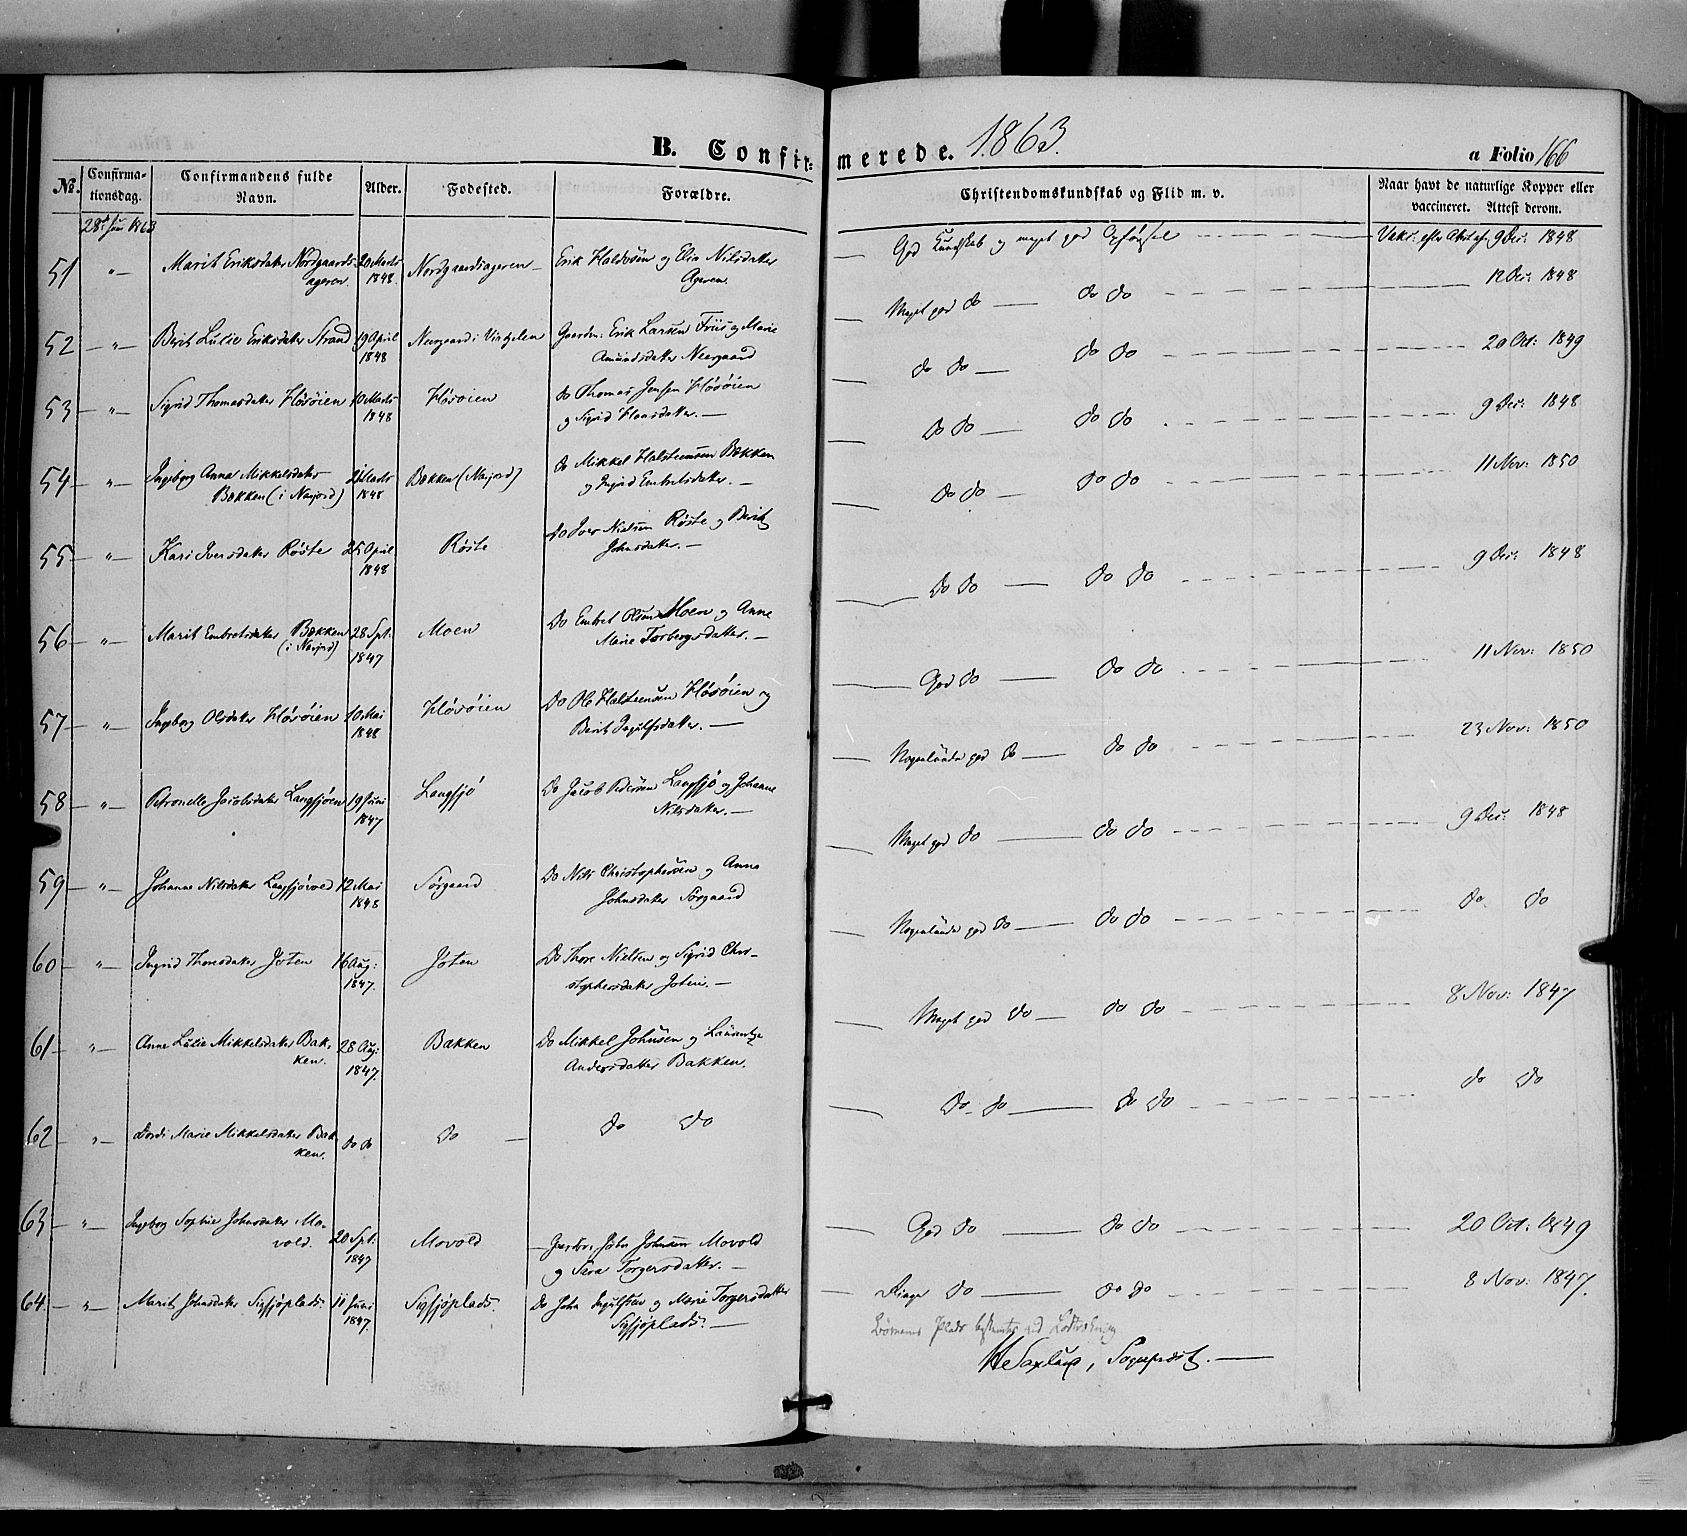 B. Confir=
merede. 1863.
a Folio 166
No. Confirma-
tionsdag. Confirmandens fulde
Navn. Alder. Fødested. Forældre. Christendomskundskab og Flid m. v. Naar havt de naturlige Kopper eller
vaccineret. Attest derom.
28de Juni 1863
51 " Marit Eriksdatter Nordgaards- 20 Marts Nordgaardsageren Erik Haldorsen og Elin Nilsdatter God Kundskab og meget god Opførsel 9 Dec: 1848
ageren. 1848. Ageren.
52 " Berit Lusie Eriksdatter Strand 19 April Neergaard i Vingelen Gaardm. Erik Larsen Friis og Marie Meget god do do do 12 Dec: 1848
1848 Amundsdatter Neergaard
53 " Sigrid Thomasdatter Høsøien 10 Marts Høsøien do Thomas Jensen Høsøien do do do do 20 Oct: 1849
1848 og Sigrid Hansdatter.
54 " Ingeborg Anna Mikkelsdatter Marts Bækken (Narjord) do Mikkel Halsteensen Bækken do do do do 9 Dec: 1848
Bækken (i Narjord) 1848 og Ingrid Embretsdatter.
55 " Kari Iversdatter Røste 25 April Røste do Iver Nielsen Røste og Berit do do do do 11 Nov: 1850
1848 Johnsdatter.
56 " Marit Embretsdatter Bækken 28 Spt. Moen do Embret Olsen Moen og Anne do do do do 9 Dec: 1848
(i Narjord) 1847 Marie Torbergsdatter.
57 " Ingeborg Olsdatter Høsøien 10 Mai Høsøien do Ole Halsteensen Høsøien og God do do do 11 Nov: 1850
1848 Berit Ingulfsdatter.
58 " Petronelle Jacobsdatter Langsjøen 19 Juni Langsjø do Jacob Pedersen Langsjø og Johanne Nogenlunde god do do do 23 Nov: 1850
1847 Nilsdatter.
59 " Johanne Nilsdatter Langsjøvold 12 Mai Sørgaard do Nils Christophersen og Anne Meget god do do do 9 Dec: 1848
1848 Johnsdatter Sørgaard
60 " Ingrid Thoresdatter Joten 16 Aug: Joten do Thore Nielsen og Sigrid Chri- Nogenlunde god do do do do do
1847. stophersdatter Joten.
61 " Anne Lusie Mikkelsdatter Bak- 28 Aug: Bakken do Mikkel Johnsen og Laurentze Meget god do do do 8 Nov: 1847
ken. 1847. Andersdatter Bakken.
62 " Dordi Marie Mikkelsdatter Bak- do do do do do do do do do do do
ken.
63 " Ingeborg Sophie Johnsdatter Mo- 20 Spt: Movold John Johnsen Movold God do do do 20 Oct: 1849
vold. 1847 og Sara Torgersdatter.
64 " Marit Johnsdatter Sigsjøplads. Juni Sigsjøplads. do John Ingulfsen og Marie Torgersdatter Ringe do do do 8 Nov: 1847.
1847. Sigsjøplads.
Børnenes Plads ved Lodtrækning
Saxlund, Sognepræst.